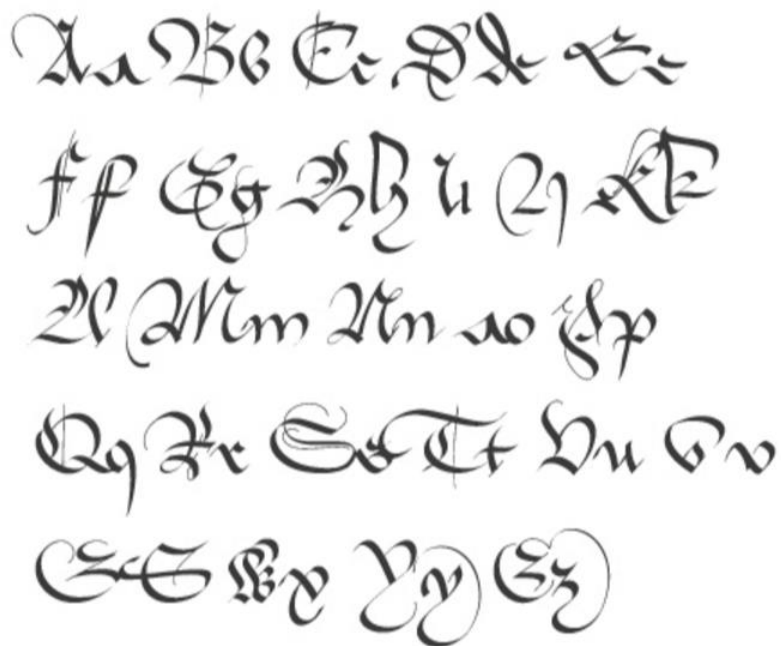 Aa Bb Cc Dd Ee
Ff Gg Hh Ii Jj Kk
Ll Mm Nn Oo Pp
Qq Rr Ss Tt Uu Vv
Xx Yy Zz